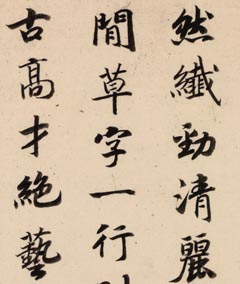 然纖勁清麗
閒草字一行
古高才絕藝